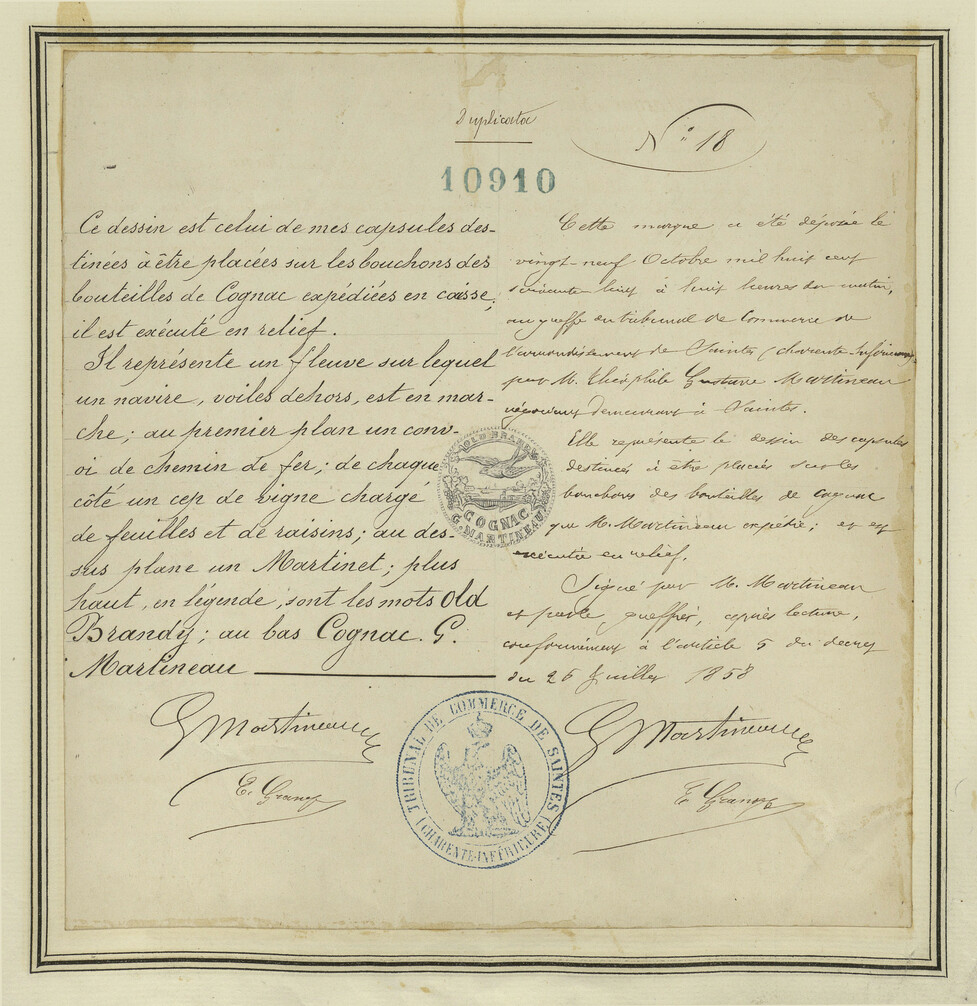 Duplicata
N° 18
10910
Ce dessin est celui de mes capsules des-
tinées à être placées sur les bouchons des
bouteilles de Cognac expédiées en caisse;
il est exécuté en relief.
Il représente un fleuve sur lequel
un navire, voiles dehors, est en mar-
che; au premier plan un conv-
oi de chemin de fer; de chaque
côté un cep de vigne chargé
de feuilles et de raisins; au des-
sus plane un Martinet; plus
haut, en légende, sont les mots Old
Brandy; au bas Cognac. G.
Martineau
G Martineau
OLD BRANDY
COGNAC
G. MARTINEAU
Cette marque a été déposée le
vingt-neuf Octobre mil huit cent
soixante huit à huit heures du matin,
au greffe du tribunal de Commerce de
l'arrondissement de Saintes (charente Inférieure),
par M. Théophile Gustave Martineau
négociant demeurant à Saintes.
Elle représente le dessin des capsules
destinées à être placées sur les
bouchons des bouteilles de cognac
que M. Martineau expédie; et est
exécutée en relief.
Signé par M. Martineau
et par le greffier, après lecture,
conformément à l'article 5 du decret
du 26 Juillet 1858
G Martineau
TRIBUNAL DE COMMERCE DE SAINTES
(CHARENTE-INFÉRIEURE)